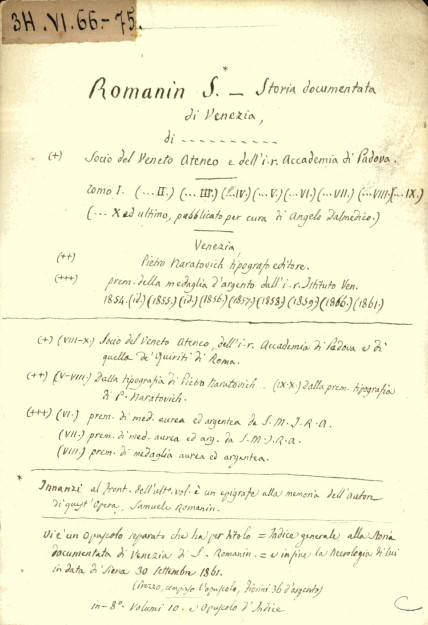 3H. VI. 66-75.
Romanin S.* — Storia documentata
di Venezia,
di ----------
(+) Socio del Veneto Ateneo e dell'i. r. Accademia di Padova.
Tomo I. (... II.) (... III.) (... IV.) (... V.) (... VI.) (... VII.) (... VIII.) (... IX.)
(... X ed ultimo, pubblicato per cura di Angelo Dalmedico.)
Venezia
(++) Pietro Naratovich tipografo editore.
(+++) prem. della medaglia d'argento dell'i. r. Istituto Ven.
1854. (id.) (1855.) (id.) (1856.) (1857.) (1858.) (1859.) (1860.) (1861.)
(+) (VIII-X.) Socio del Veneto Ateneo, dell'i. r. Accademia di Padova e di
quella de' Quiriti di Roma.
(++) (V-VIII.) Dalla tipografia di Pietro Naratovich. (IX-X.) Dalla prem. tipografia
di P. Naratovich.
(+++) (VI.) prem. di med. aurea ed argentea da S. M. I. R. A.
(VII.) prem. di med. aurea ed arg. da S. M. I. R. A.
(VIII.) prem. di medaglia aurea ed argentea.
* Innanzi al front. dell'ult.° vol. è un epigrafe alla memoria dell'autore
di quest'Opera, Samuele Romanin.
Vi è un Opuscolo separato che ha per titolo = Indice generale alla Storia
documentata di Venezia di S. Romanin. = e in fine la Necrologia di lui
in data di Siena 30 Settembre 1861.
(Prezzo, compreso l'opuscolo, Fiorini 36 d'argento)
in-8.° Volumi 10. e Opuscolo d'Indice
C